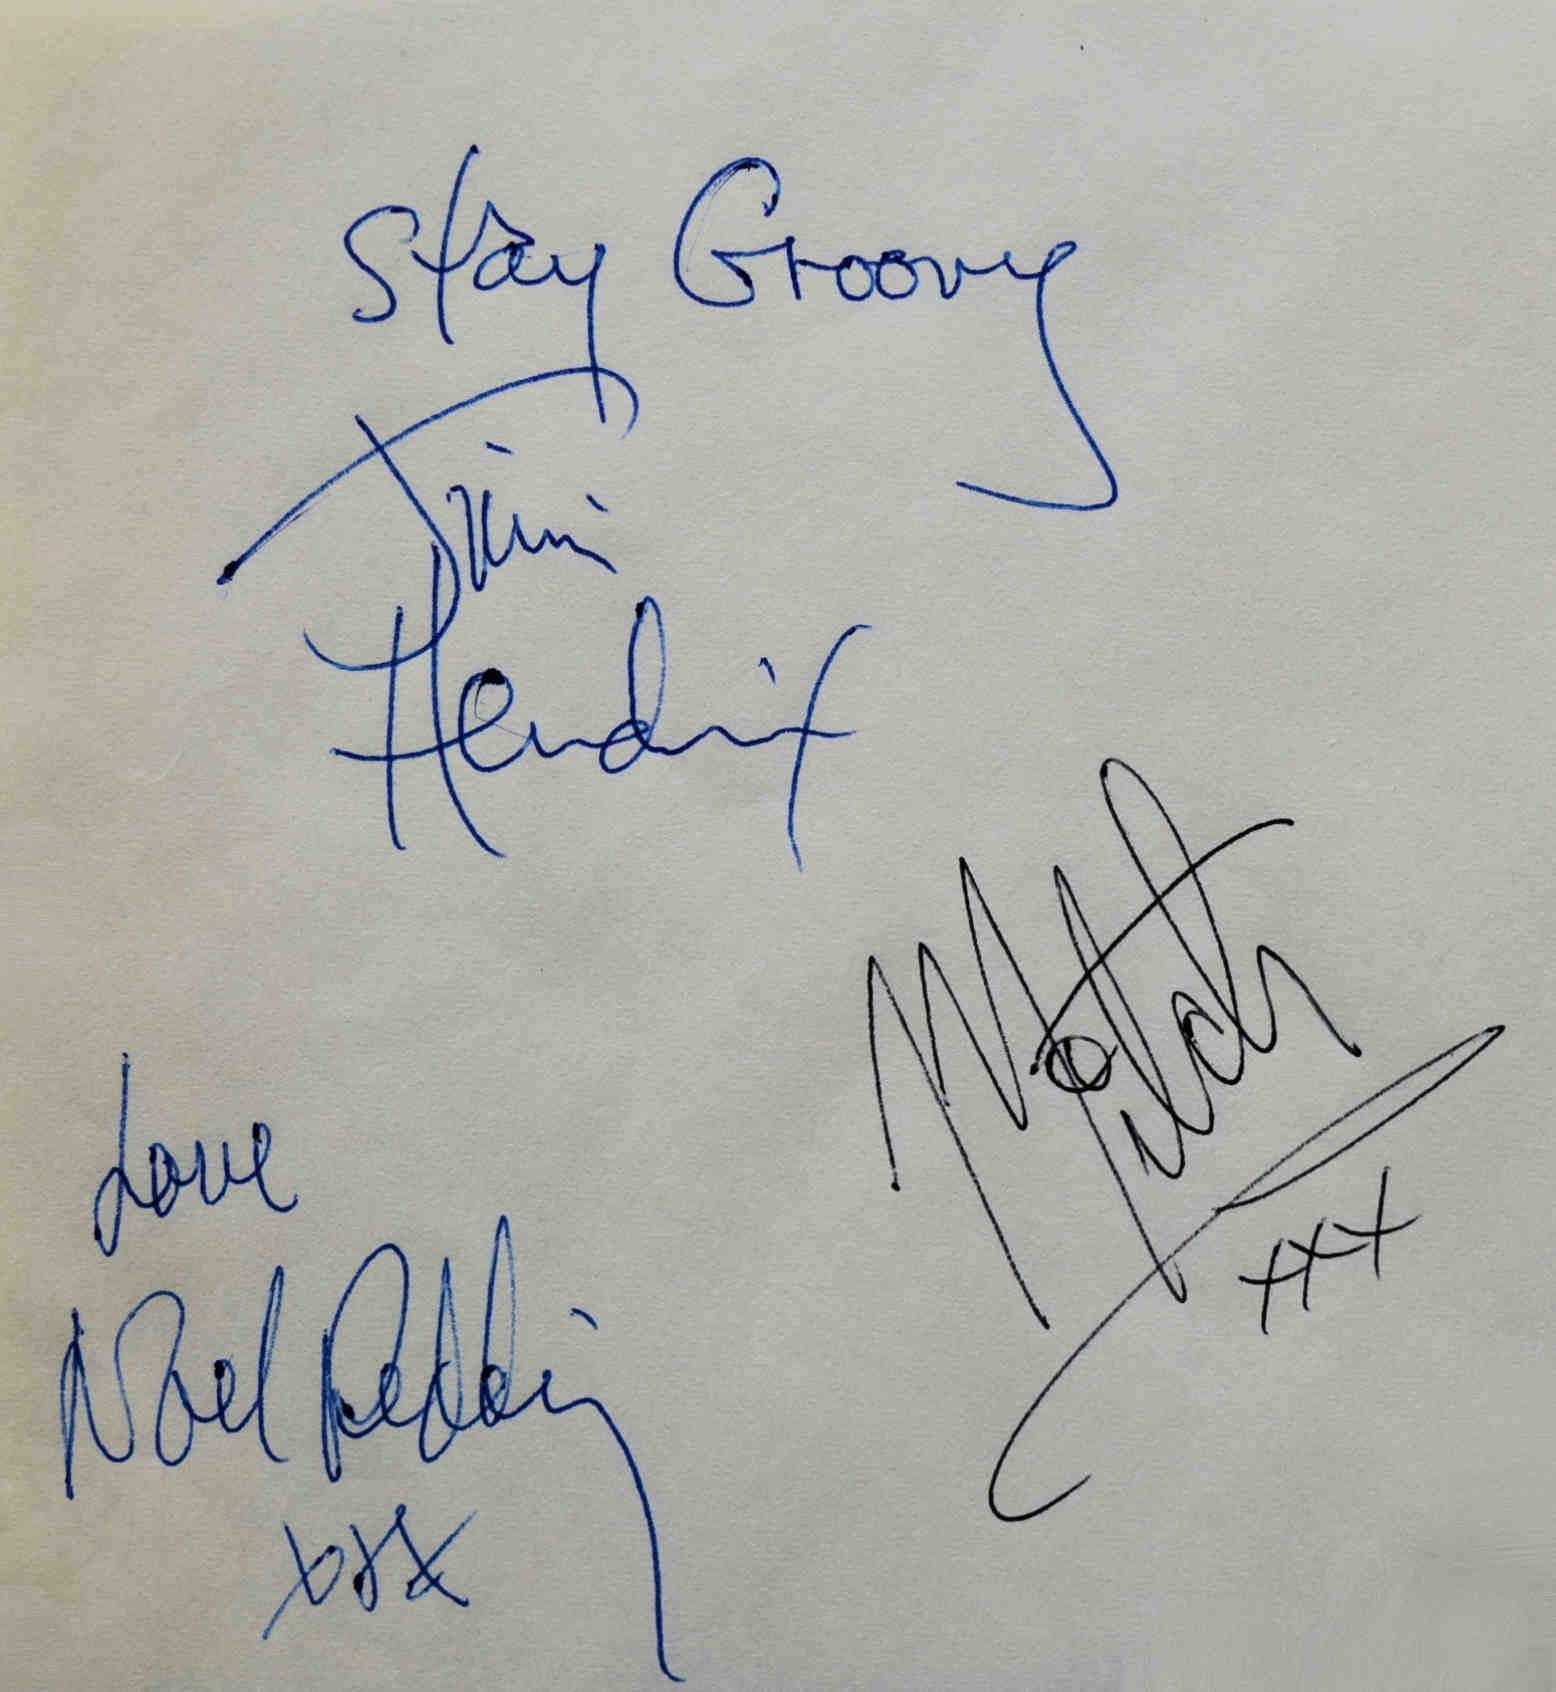 Stay Groovy
Jimi
Hendrix
Mitch
xxx
Love
Noel Redding
xxx